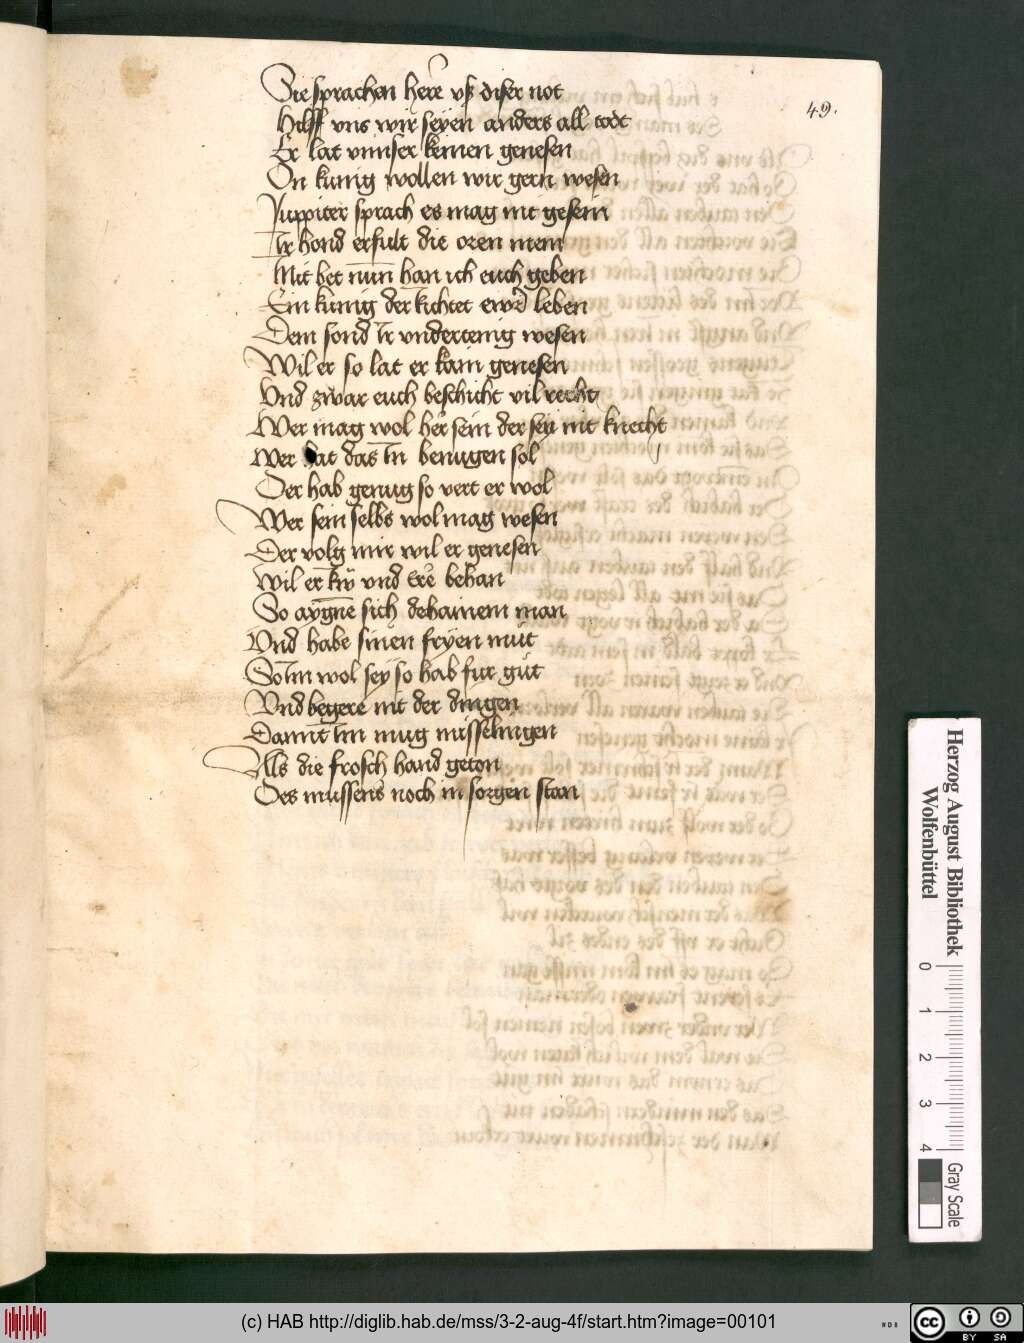 49.
Sie sprachen here vß diser not
Hilff vns wir seyen anders all todt
Er lat vnnser keinen genesen
On kunig wollen wir gern wesen
Juppiter sprach es mag nit gesein
Ir hond erfult die oren mein
Mit bet nun han ich euch geben
Ein kunig der richtet ewr leben
Dem sond Ir vndertenig wesen
Wil er so lat er kain genesen
Vnd zwar euch beschicht vil recht
Wer mag wol her sein der sey nit knecht
Wer hat das In benugen sol
Der hab genug so vert er wol
Wer sein selbs wol mag wesen
Der volg mir wil er genesen
Wil er fry vnd ere behan
So aygne sich dehainem man
Vnd habe sinen fryen mut
So Im wol sey so hab fur gut
Vnd begere nit der dingen
Damit Im mug misselingen
Als die frosch hand geton
Des mussens noch in sorgen stan
Herzog August Bibliothek
Wolfenbüttel
0 1 2 3 4
Gray Scale
(c) HAB http://diglib.hab.de/mss/3-2-aug-4f/start.htm?image=00101
WDB
cc BY SA